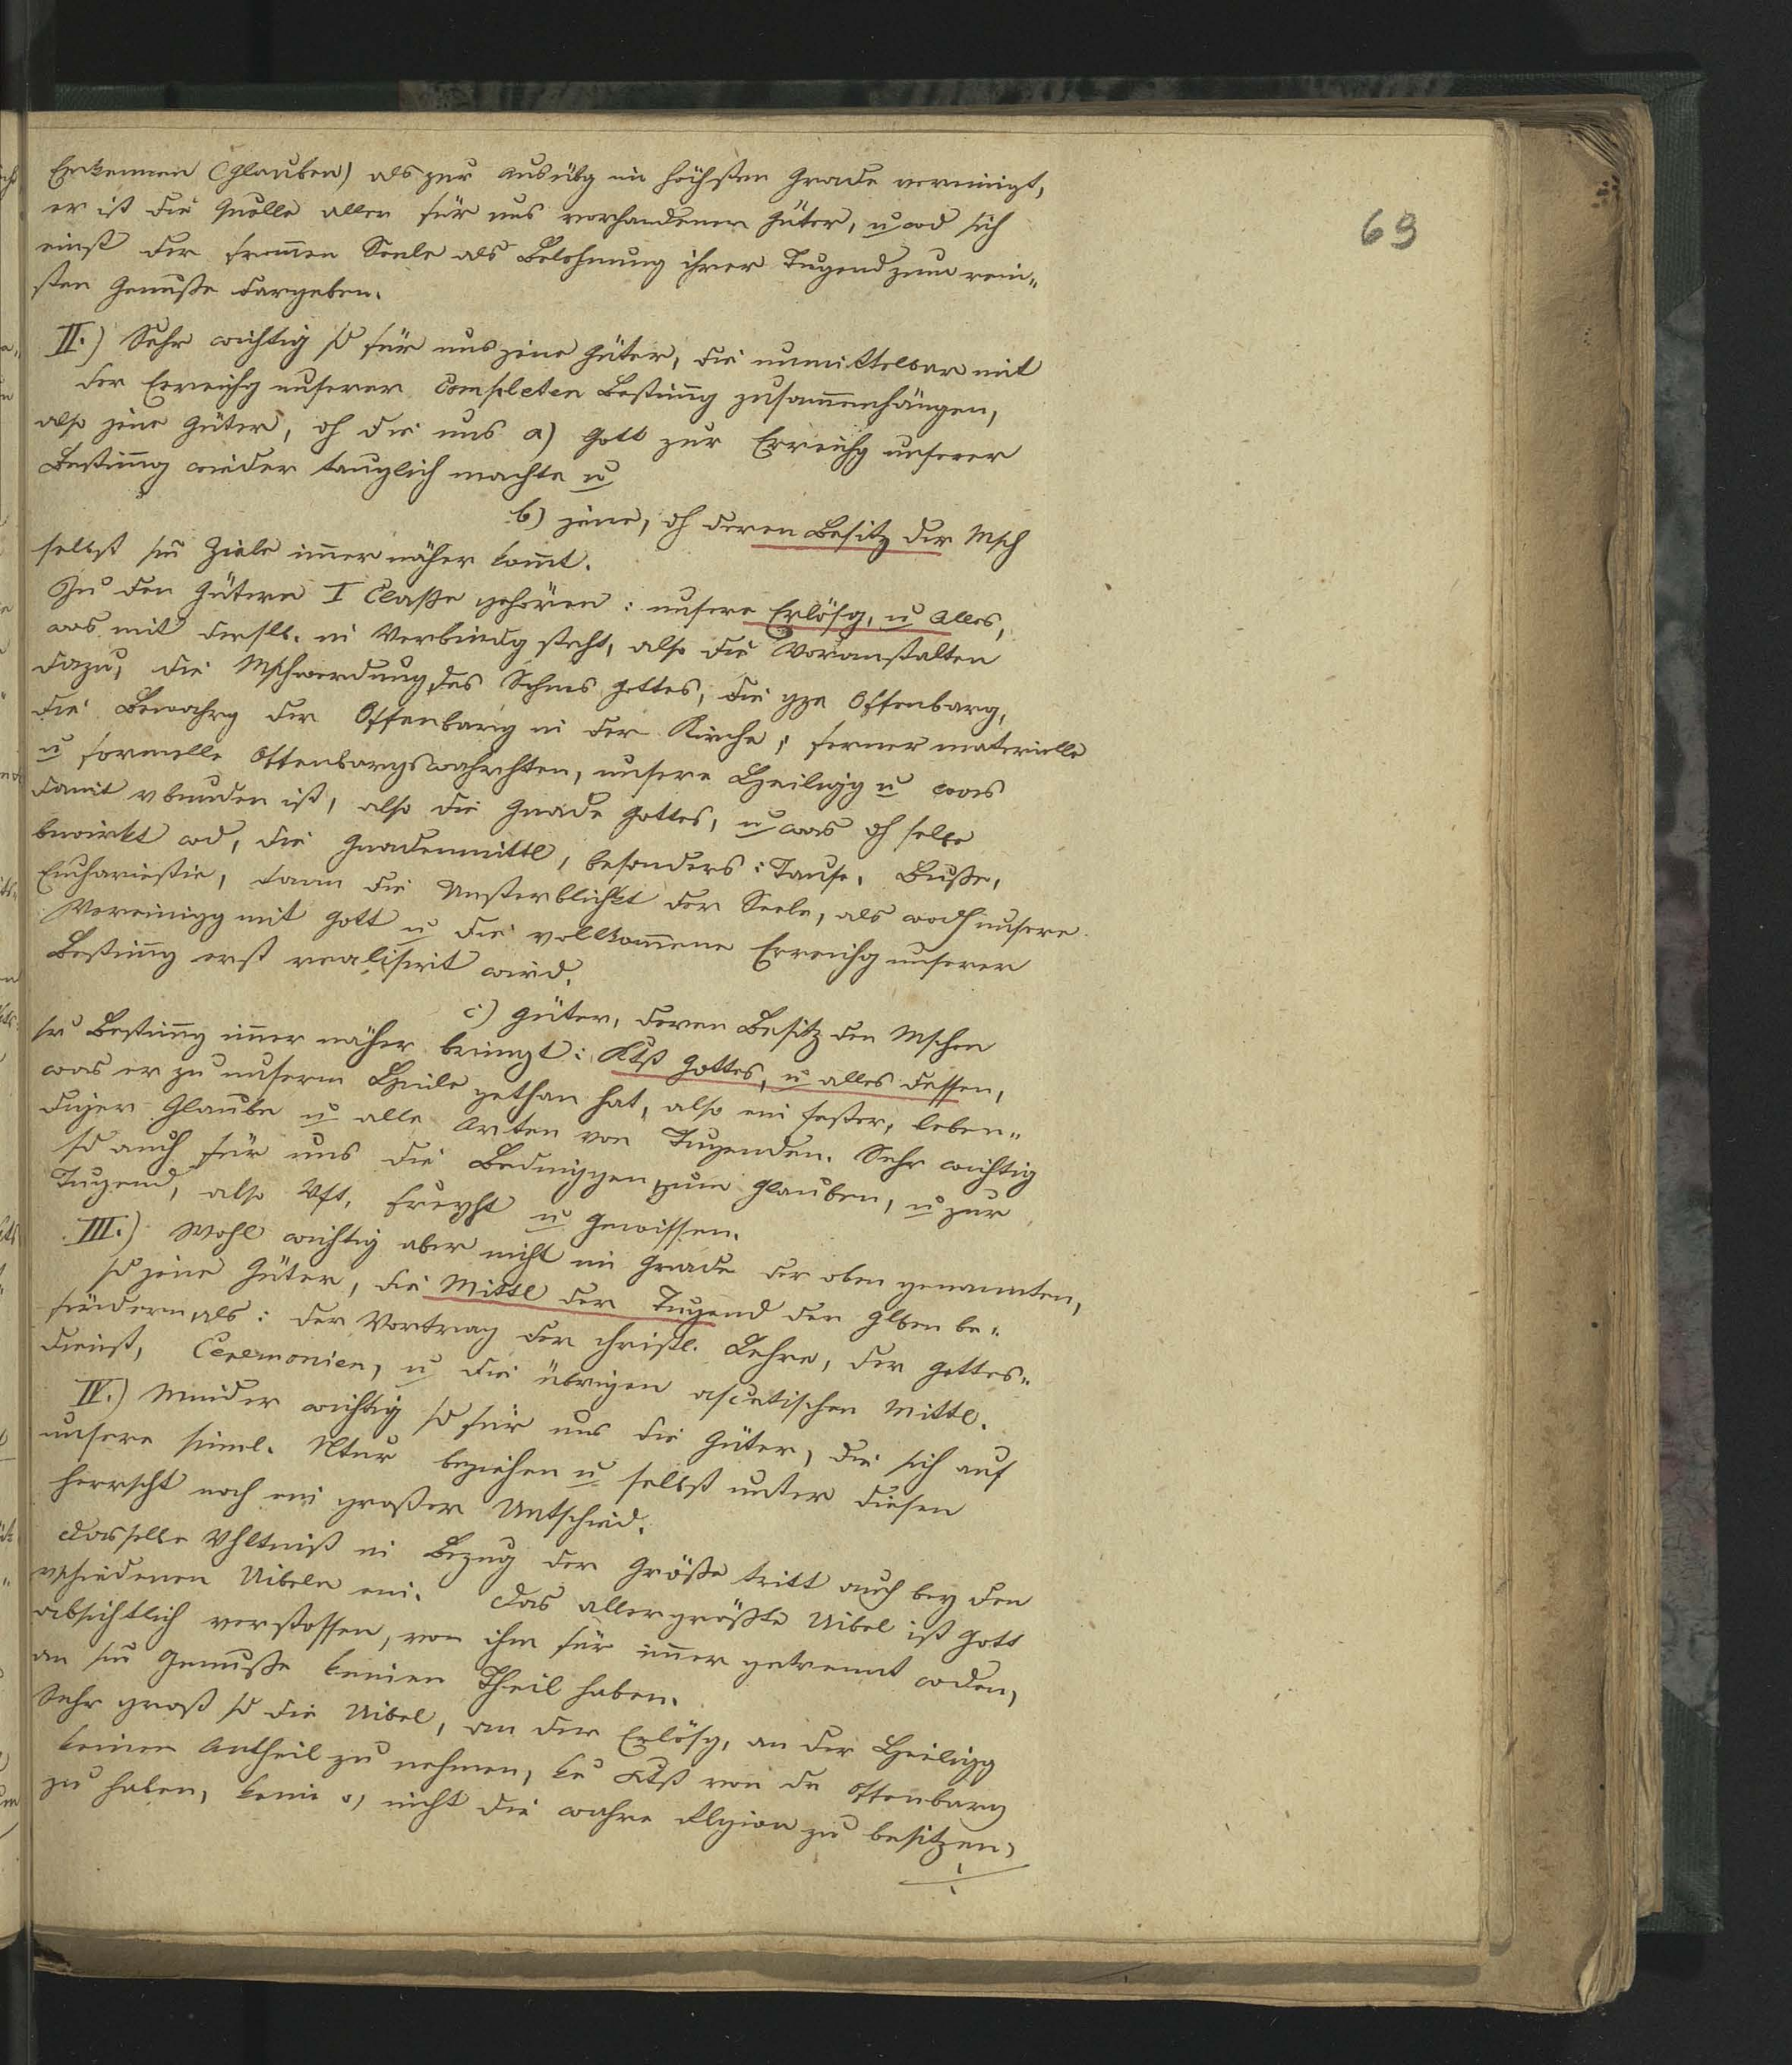 Erkennen (Glauben) als zur Ausübg im höchsten Grade vereinigt,
er ist die Quelle aller für uns vorhandenen Güter, u wd sich
einst der from̄en Seele als Belohnung ihrer Tugend zum rein„
sten Genuße dargeben.
69
II.) Sehr wichtig sd für uns jene Güter, die unmittelbar mit
der Erreichg unserer completen Bestim̄g zusammenhängen,
also jene Güter, dh die uns a) Gott zur Erreichg unserer
Bestim̄ng wieder tauglich machte u
b) jene, dh deren Besitz der Msch
selbst sm Ziele im̄er näher kom̄t.
Zu den Gütern I Classe gehören: unsere Erlösg, u Alles,
was mit dersslb. in Verbindg steht, also die Voranstalten
dazu, die Mschwerdung des Sohnes Gottes, die gze Offenbarg,
die Bewahrg der Offenbarg in der Kirche, ferner materielle
u formelle Offenbargswahrhten, unsere Heiligg u was
damit vbunden ist, also die Gnade Gottes, u was dh selbe
bewirkt wd, die Gnadenmittl, besonders: Taufe, Buße,
Eucharistie, dann die Unsterblichkt der Seele, als wodh unsere
Vereinigg mit Gott u die vollkom̄ene Erreichg unserer
Bestim̄ng erst realisirt wird.
c) Güter, deren Besitz den Mschen
sr Bestim̄ng im̄er näher bringt: Ktß Gottes, u alles dessen,
was er zu unserm Heile gethan hat, also ein fester, leben„
diger Glaube u alle Arten von Tugenden. Sehr wichtig
sd auch für uns die Bedinggen zum Glauben, u zur
Tugend, also Vft, Freyht u Gewissen.
III.) Wohl wichtig aber nicht im Grade der oben genannten,
sd jene Güter, die Mittl der Tugend den Glben be„
fördern, als: der Vortrag der christl. Lehre, der Gottes„
dienst, Ceremonien, u die übrigen ascetischen Mittl.
IV.) Minder wichtig sd für uns die Güter, die sich auf
unsere sinnl. Ntur beziehen u selbst unter diesen
herrscht noch ein großer Untschied.
Dasselbe Vhltniß in Bezug der Größe tritt auch bey den
vschiedenen Uibeln ein. Das allergrößte Uibel ist Gott
absichtlich verstossen, von ihm für im̄er getrennt wden,
an sm Genuße keinen Theil haben.
Sehr groß sd die Uibel, an der Erlösg, an der Heiligg
keinen Antheil zu nehmen, ke Ktß von der Offenbarg
zu haben, nicht die wahre Rlgion zu besitzen,